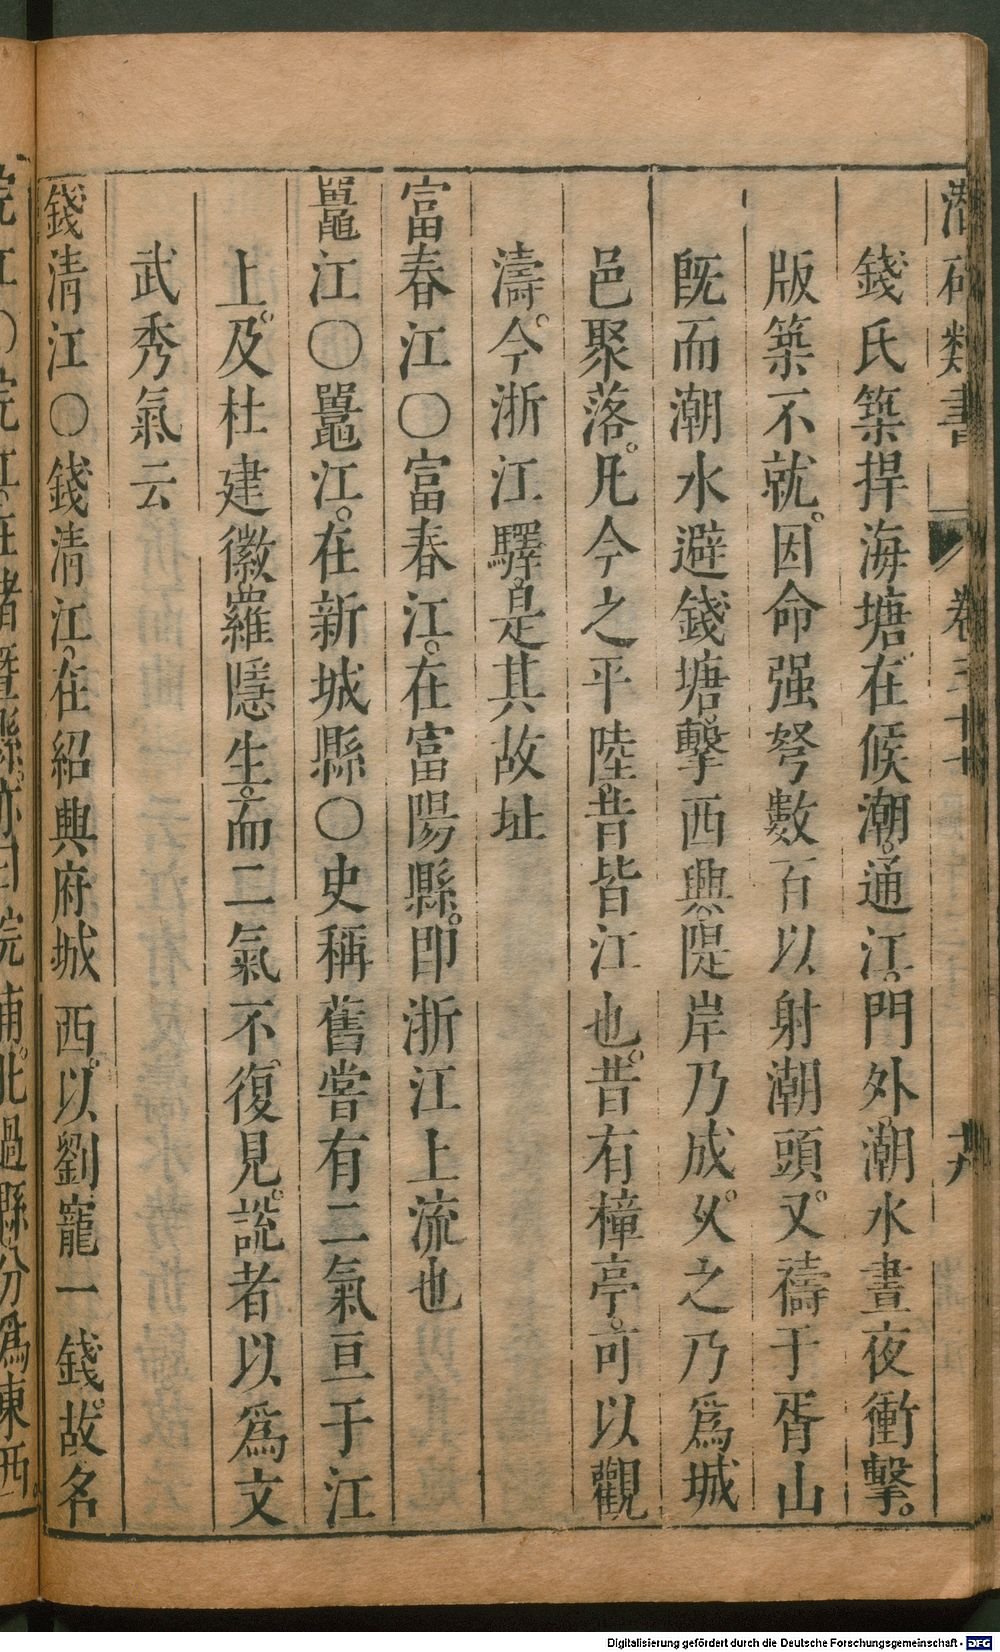 潛確類書 卷三十七 十六
錢氏築捍海塘在候潮通江門外潮水晝夜衝擊
版築不就因命强弩數百以射潮頭又禱于胥山
旣而潮水避錢塘擊西興隄岸乃成乆之乃爲城
邑聚落凡今之平陸昔皆江也昔有樟亭可以觀
濤今浙江驛是其故址
富春江〇富春江在富陽縣即浙江上流也
鼉江〇鼉江在新城縣〇史稱舊嘗有二氣亘于江
上及杜建徽羅隱生而二氣不復見説者以爲文
武秀氣云
錢清江〇錢清江在紹興府城西以劉寵一錢故名
浣江〇浣江在諸暨縣亦曰浣浦北過縣分爲東西
Digitalisierung gefördert durch die Deutsche Forschungsgemeinschaft - DFG